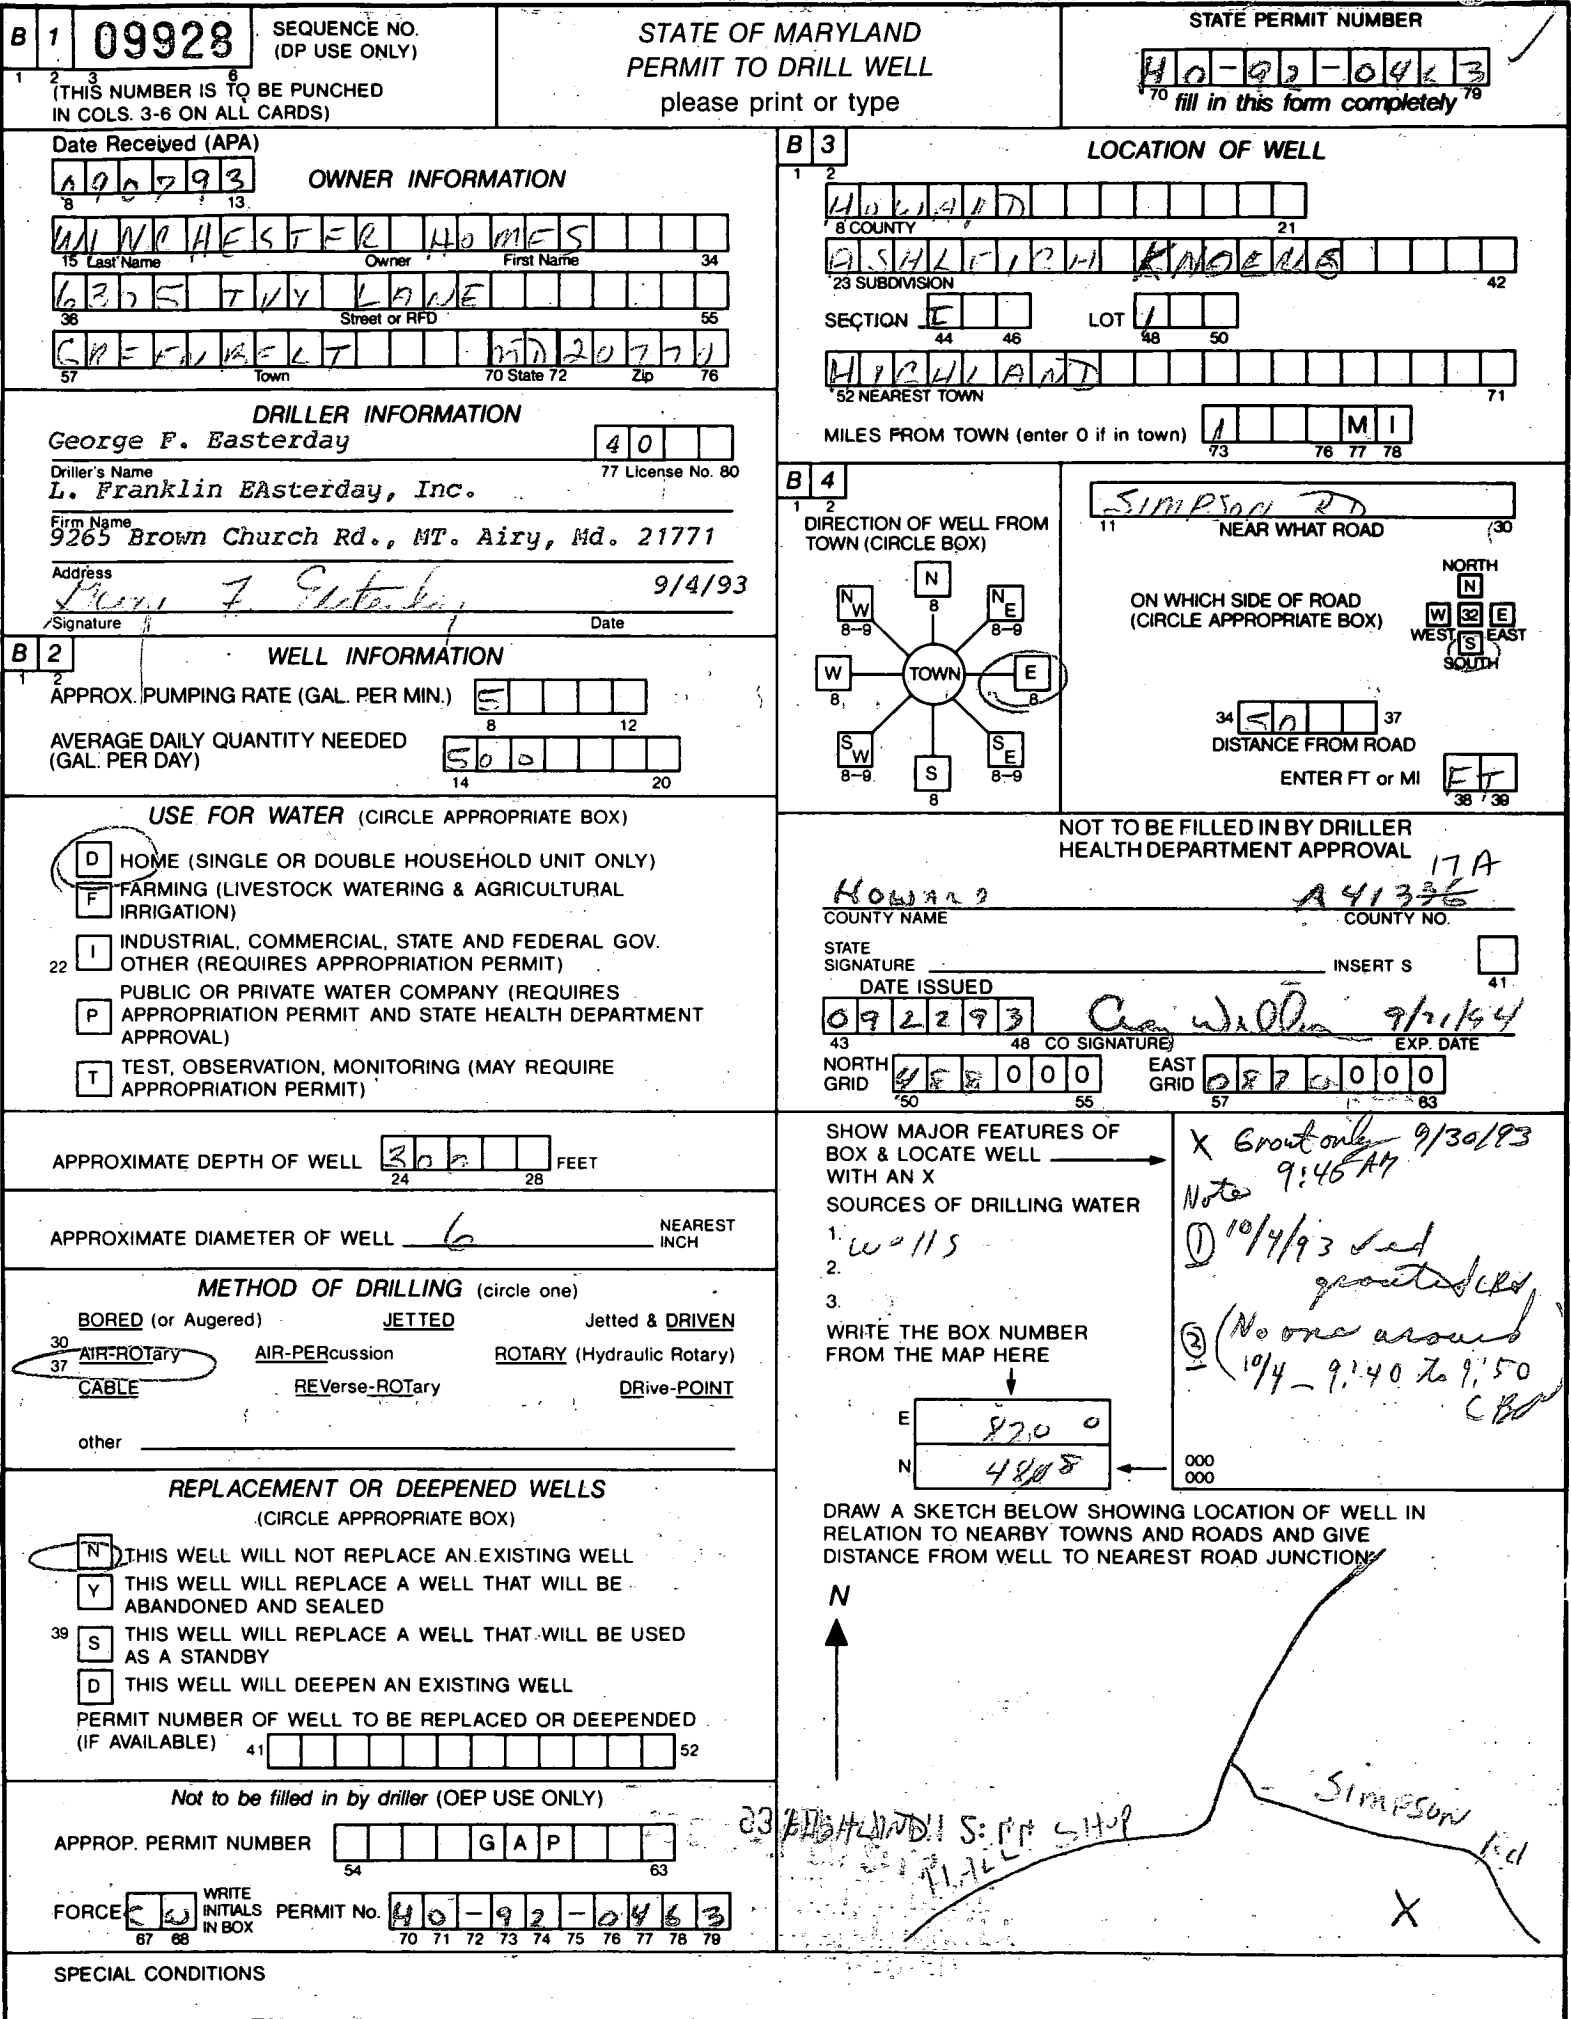 B 1 09928 SEQUENCE NO. (DP USE ONLY)
1 2 3 6
(THIS NUMBER IS TO BE PUNCHED
IN COLS. 3-6 ON ALL CARDS)
STATE OF MARYLAND
PERMIT TO DRILL WELL
please print or type
STATE PERMIT NUMBER
HO-92-0463
70 fill in this form completely 79
Date Received (APA)
090793
8 13
OWNER INFORMATION
WINCHESTER HOMES
15 Last Name Owner First Name 34
6305 IVY LANE
36 Street or RFD 55
GREENBELT MD 20771
57 Town 70 State 72 Zip 76
DRILLER INFORMATION
George F. Easterday 40
Driller's Name 77 License No. 80
L. Franklin EAsterday, Inc.
Firm Name
9265 Brown Church Rd., MT. Airy, Md. 21771
Address
9/4/93
Signature Date
B 2 WELL INFORMATION
1 2
APPROX. PUMPING RATE (GAL. PER MIN.) 5
8 12
AVERAGE DAILY QUANTITY NEEDED
(GAL. PER DAY) 500
14 20
USE FOR WATER (CIRCLE APPROPRIATE BOX)
D HOME (SINGLE OR DOUBLE HOUSEHOLD UNIT ONLY)
F FARMING (LIVESTOCK WATERING & AGRICULTURAL
IRRIGATION)
22 I INDUSTRIAL, COMMERCIAL, STATE AND FEDERAL GOV.
OTHER (REQUIRES APPROPRIATION PERMIT)
P PUBLIC OR PRIVATE WATER COMPANY (REQUIRES
APPROPRIATION PERMIT AND STATE HEALTH DEPARTMENT
APPROVAL)
T TEST, OBSERVATION, MONITORING (MAY REQUIRE
APPROPRIATION PERMIT)
APPROXIMATE DEPTH OF WELL 300 FEET
24 28
APPROXIMATE DIAMETER OF WELL 6 NEAREST
INCH
METHOD OF DRILLING (circle one)
BORED (or Augered) JETTED Jetted & DRIVEN
30
37 AIR-ROTary AIR-PERcussion ROTARY (Hydraulic Rotary)
CABLE REVerse-ROTary DRive-POINT
other
REPLACEMENT OR DEEPENED WELLS
(CIRCLE APPROPRIATE BOX)
N THIS WELL WILL NOT REPLACE AN EXISTING WELL
Y THIS WELL WILL REPLACE A WELL THAT WILL BE
ABANDONED AND SEALED
39 S THIS WELL WILL REPLACE A WELL THAT WILL BE USED
AS A STANDBY
D THIS WELL WILL DEEPEN AN EXISTING WELL
PERMIT NUMBER OF WELL TO BE REPLACED OR DEEPENDED
(IF AVAILABLE) 41 52
Not to be filled in by driller (OEP USE ONLY)
APPROP. PERMIT NUMBER GAP
54 63
FORCE CW WRITE INITIALS IN BOX PERMIT No. HO-92-0463
67 68 70 71 72 73 74 75 76 77 78 79
SPECIAL CONDITIONS
B 3 LOCATION OF WELL
1 2
HOWARD
8 COUNTY 21
ASHLEIGH KNOLLS
23 SUBDIVISION 42
SECTION LOT 1
44 46 48 50
HIGHLAND
52 NEAREST TOWN 71
MILES FROM TOWN (enter 0 if in town) 1 MI
73 76 77 78
B 4
1 2
DIRECTION OF WELL FROM
TOWN (CIRCLE BOX)
N 8
NW 8-9 NE 8-9
W 8 TOWN E 8
SW 8-9 SE 8-9
S 8
SIMPSON RD
11 NEAR WHAT ROAD 30
ON WHICH SIDE OF ROAD
(CIRCLE APPROPRIATE BOX)
NORTH
N
W 32 E
WEST EAST
S
SOUTH
34 50 37
DISTANCE FROM ROAD
ENTER FT or MI FT
38 39
NOT TO BE FILLED IN BY DRILLER
HEALTH DEPARTMENT APPROVAL
17A
HOWARD A 41336
COUNTY NAME COUNTY NO.
STATE
SIGNATURE INSERT S
41
DATE ISSUED
092293 9/21/94
43 48 CO SIGNATURE EXP. DATE
NORTH
GRID 488000 EAST
GRID 0820000
50 55 57 63
SHOW MAJOR FEATURES OF
BOX & LOCATE WELL
WITH AN X
SOURCES OF DRILLING WATER
1. wells
2.
3.
WRITE THE BOX NUMBER
FROM THE MAP HERE
E 820 0
N
000
000
X Grout only 9/30/93
9:45 AM
Note
① 10/4/93
grouted
② (No one around
10/4 - 9:40 to 9:50
DRAW A SKETCH BELOW SHOWING LOCATION OF WELL IN
RELATION TO NEARBY TOWNS AND ROADS AND GIVE
DISTANCE FROM WELL TO NEAREST ROAD JUNCTION
N
Simpson Rd
X